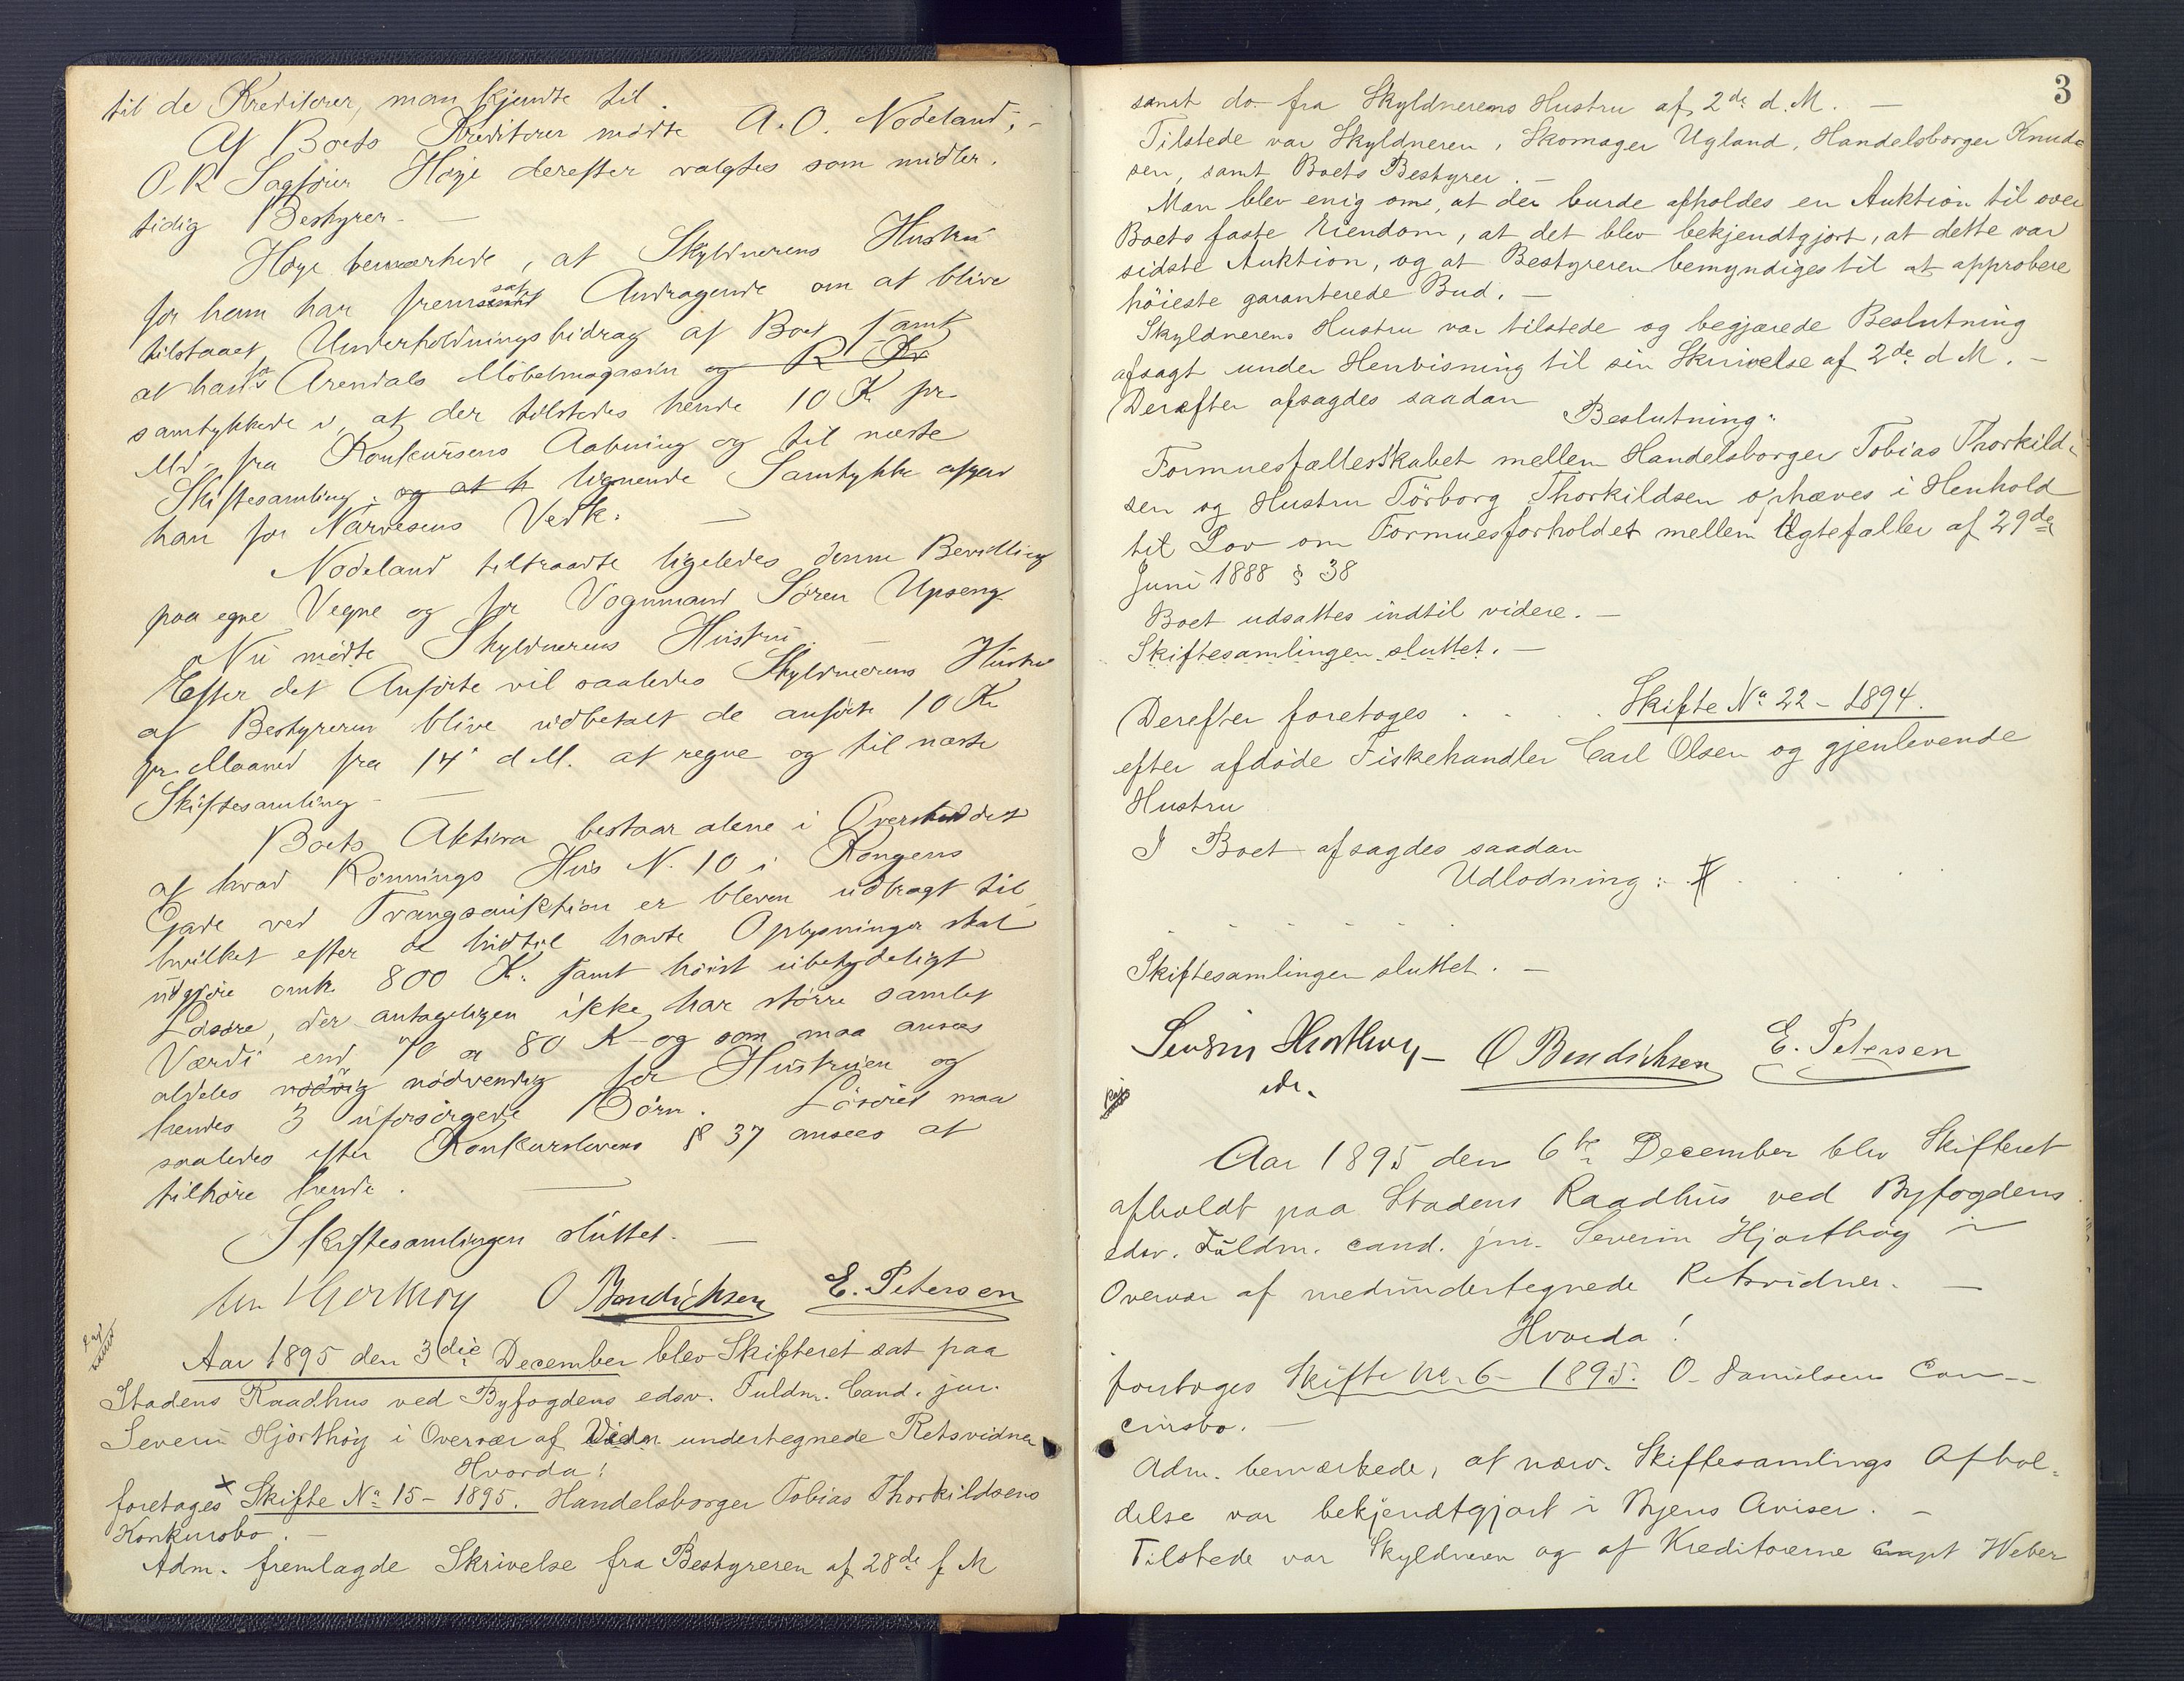 til de Kreditorer, man kjendte til.
Af Boets Kreditorer mødte A. O. Nodeland,
O. R. Sagfører Høye derefter valgtes som midler-
tidig Bestyrer. —
Høye bemærkede, at Skyldnerens Hustru
for ham har fremsat Andragende om at blive
tilstaaet Underholdningsbidrag af Boet samt
at Arendals Möbelmagasin og R Kr
samtykkede i, at der tilstedes hende 10 K pr
Md. fra Konkursens Aabning og til næste
Skiftesamling; og at h lignende Samtykke afgav
han for Narvesens Vedk. —
Nodeland tiltraadte ligeledes denne Bevilling
paa egne Vegne og for Vognmand Sören Upseng.
Nu mødte Skyldnerens Hustru. —
Efter det Anførte vil saaledes Skyldnerens Hustru
af Bestyreren blive udbetalt de anførte 10 Kr
pr. Maaned fra 14' d. M. at regne og til næste
Skiftesamling. —
Boets Aktiva bestaar alene i Overskuddet
af hvad Rönnings Hus N. 10 i Kongens
Gade ved Tvangsauktion er bleven udbragt til,
hvilket efter de hidtil havte Oplysninger skal
udgjøre omk. 800 K. samt høist ubetydeligt
Løsøre, der antageligen ikke har større samlet
Værdi end 70 a 80 K og som maa ansees
aldeles nødvendig for Hustruen og
hendes 3 uforsørgede Børn. Løsøret maa
saaledes efter Konkurslovens § 37 ansees at
tilhøre hende. —
Skiftesamlingen sluttet. —
Hjorthøy O Bendichsen E. Petersen
Aar 1895 den 3die December blev Skifteret sat paa
Stadens Raadhus ved Byfogdens edsv. Fuldm. Cand. jur.
Severin Hjorthöy i Overvær af undertegnede Retsvidner
Hvorda!
foretages Skifte No 15 - 1895. Handelsborger Tobias Thorkildsens
Konkursbo. —
Adm. fremlagde Skrivelse fra Bestyreren af 28de f. M
3
samt do. fra Skyldnerens Hustru af 2de d. M. —
Tilstede var Skyldneren, Skomager Ugland, Handelsborger Knud-
sen, samt Boets Bestyrer. —
Man blev enig om, at der burde afholdes en Auktion til over
Boets faste Eiendom, at det blev bekjendtgjort, at dette var
sidste Auktion, og at Bestyreren bemyndiges til at approbere
høieste garanterede Bud. —
Skyldnerens Hustru var tilstede og begjærede Beslutning
afsagt under Henvisning til sin Skrivelse af 2de d M. —
Derefter afsagdes saadan
Beslutning:
Formuesfællesskabet mellem Handelsborger Tobias Thorkild-
sen og Hustru Törborg Thorkildsen ophæves i Henhold
til Lov om Formuesforholdet mellem Ægtefæller af 29de
Juni 1888 § 38
Boet udsattes indtil videre. —
Skiftesamlingen sluttet. —
Derefter foretoges . . . . Skifte No 22 - 1894.
efter afdøde Fiskehandler Carl Olsen og gjenlevende
Hustru
I Boet afsagdes saadan
Udlodning:
Skiftesamlingen sluttet. —
Severin Hjorthøy — O Bendichsen E. Petersen
Aar 1895 den 6te December blev Skifteret
afholdt paa Stadens Raadhus ved Byfogdens
edsv. Fuldm. cand. jur. Severin Hjorthøy i
Overvær af medundertegnede Retsvidner. —
Hvorda!
foretoges Skifte No. 6 - 1895. O. Danielsens Con-
cursbo. —
Adm. bemærkede, at nærv. Skiftesamlings Afhol-
delse var bekjendtgjort i Byens Aviser. —
Tilstede var Skyldneren og af Kreditorerne Weber